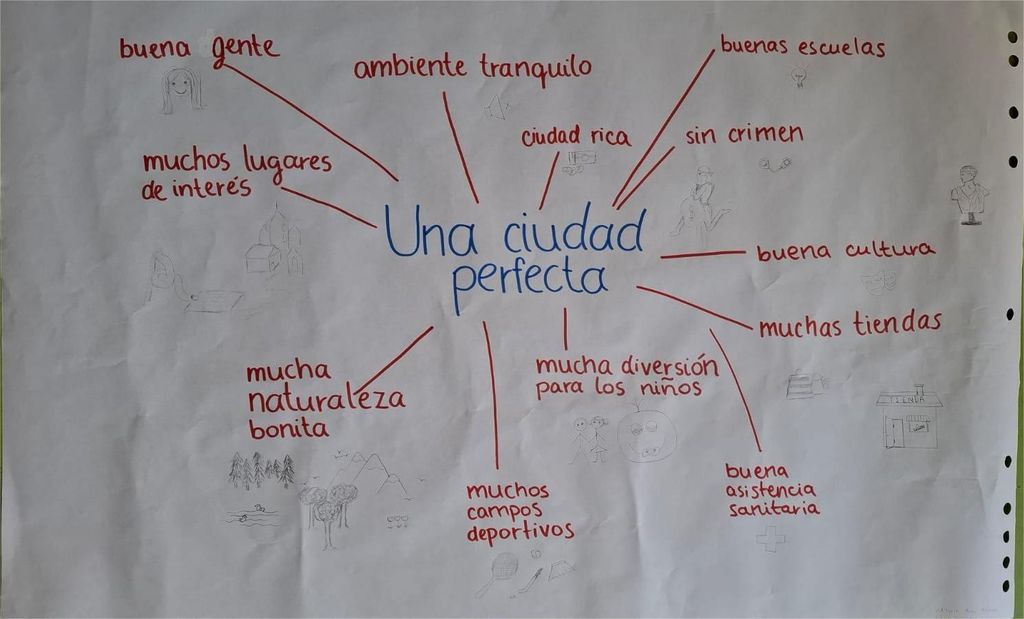 buena gente
ambiente tranquilo
buenas escuelas
ciudad rica
sin crimen
muchos lugares
de interés
Una ciudad
perfecta
buena cultura
muchas tiendas
mucha
naturaleza
bonita
mucha diversión
para los niños
TIENDA
muchos
campos
deportivos
buena
asistencia
sanitaria